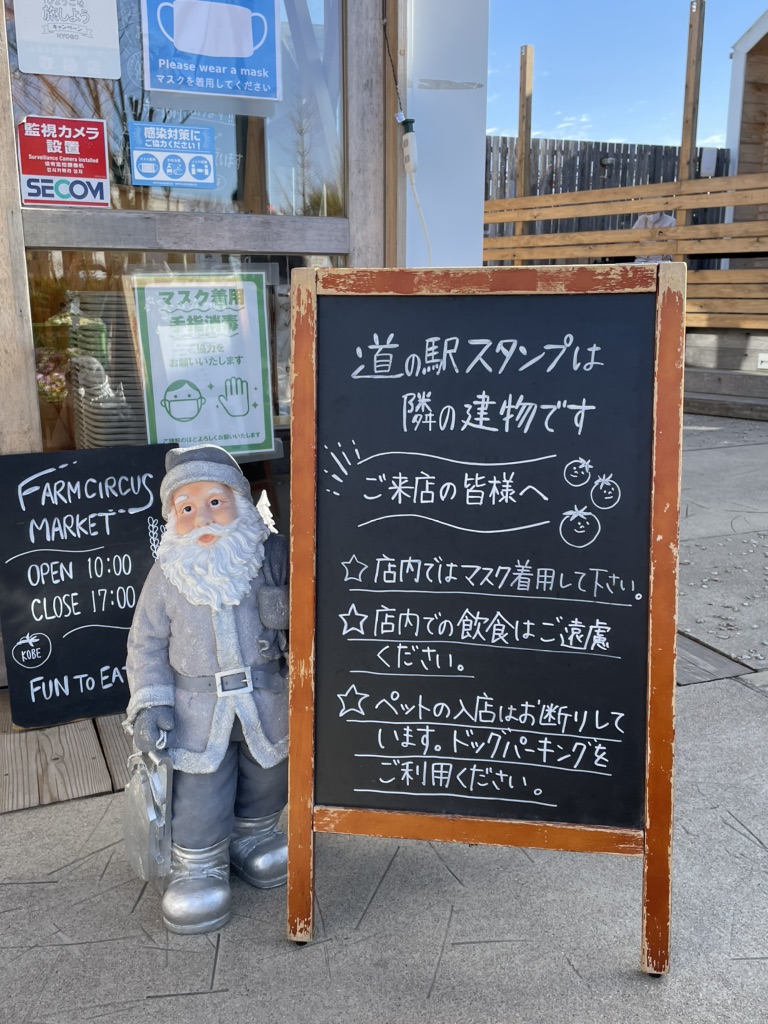 旅しよう
キャンペーン
HYOGO
Please wear a mask
マスクを着用してください
監視カメラ
設置
Surveillance Camera Installed
SECOM
感染対策に
ご協力ください!
マスク着用
手指消毒
ご協力を
お願いいたします
FARM CIRCUS
MARKET
OPEN 10:00
CLOSE 17:00
KOBE
FUN TO EAT
道の駅スタンプは
隣の建物です
ご来店の皆様へ
☆店内ではマスク着用して下さい。
☆店内での飲食はご遠慮
ください。
☆ペットの入店はお断りして
います。ドッグパーキングを
ご利用ください。